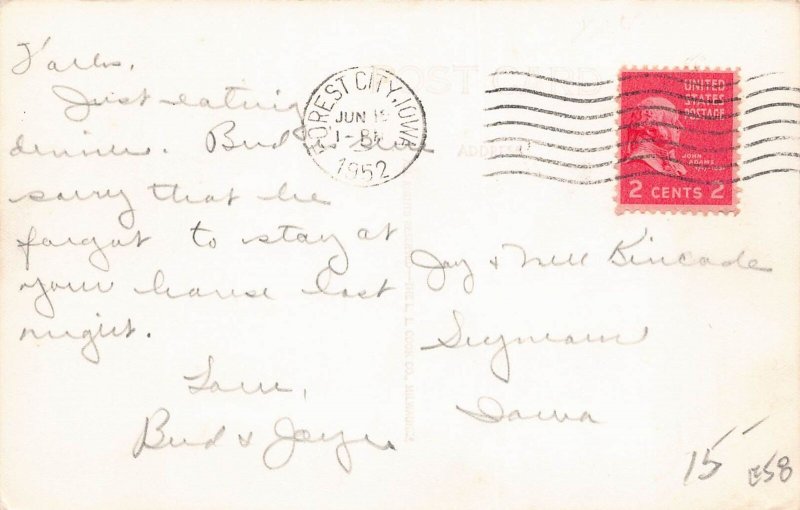 Folks,
Just eating
dinner. Bud is
sorry that he
forgot to stay at
your house last
night.
Love,
Bud & Joyce
FOREST CITY, IOWA
JUN 19
1952
UNITED
STATES
POSTAGE
JOHN
ADAMS
2 CENTS 2
POST CARD
ADDRESS
Jay & Nell Kincade
Seymour
Iowa
L. L. COOK CO., MILWAUKEE
15
ES8